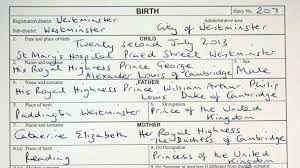 BIRTH
Entry No. 207
Registration district Westminster
Administrative area
Sub-district Westminster
City of Westminster
1. Date and place of birth
CHILD
Twenty second July 2013
St Mary's Hospital Praed Street Westminster
2. Name and surname
3. Sex
His Royal Highness Prince George
Alexander Louis of Cambridge
Male
4. Name and surname
FATHER
His Royal Highness Prince William Arthur Philip
Louis Duke of Cambridge
5. Place of birth
6. Occupation
Paddington Westminster
Prince of the United
Kingdom
7. Name and surname
MOTHER
Catherine Elizabeth Her Royal Highness
The Duchess of Cambridge
8.(a) Place of birth
8.(b) Occupation
Reading
Princess of the United
Kingdom